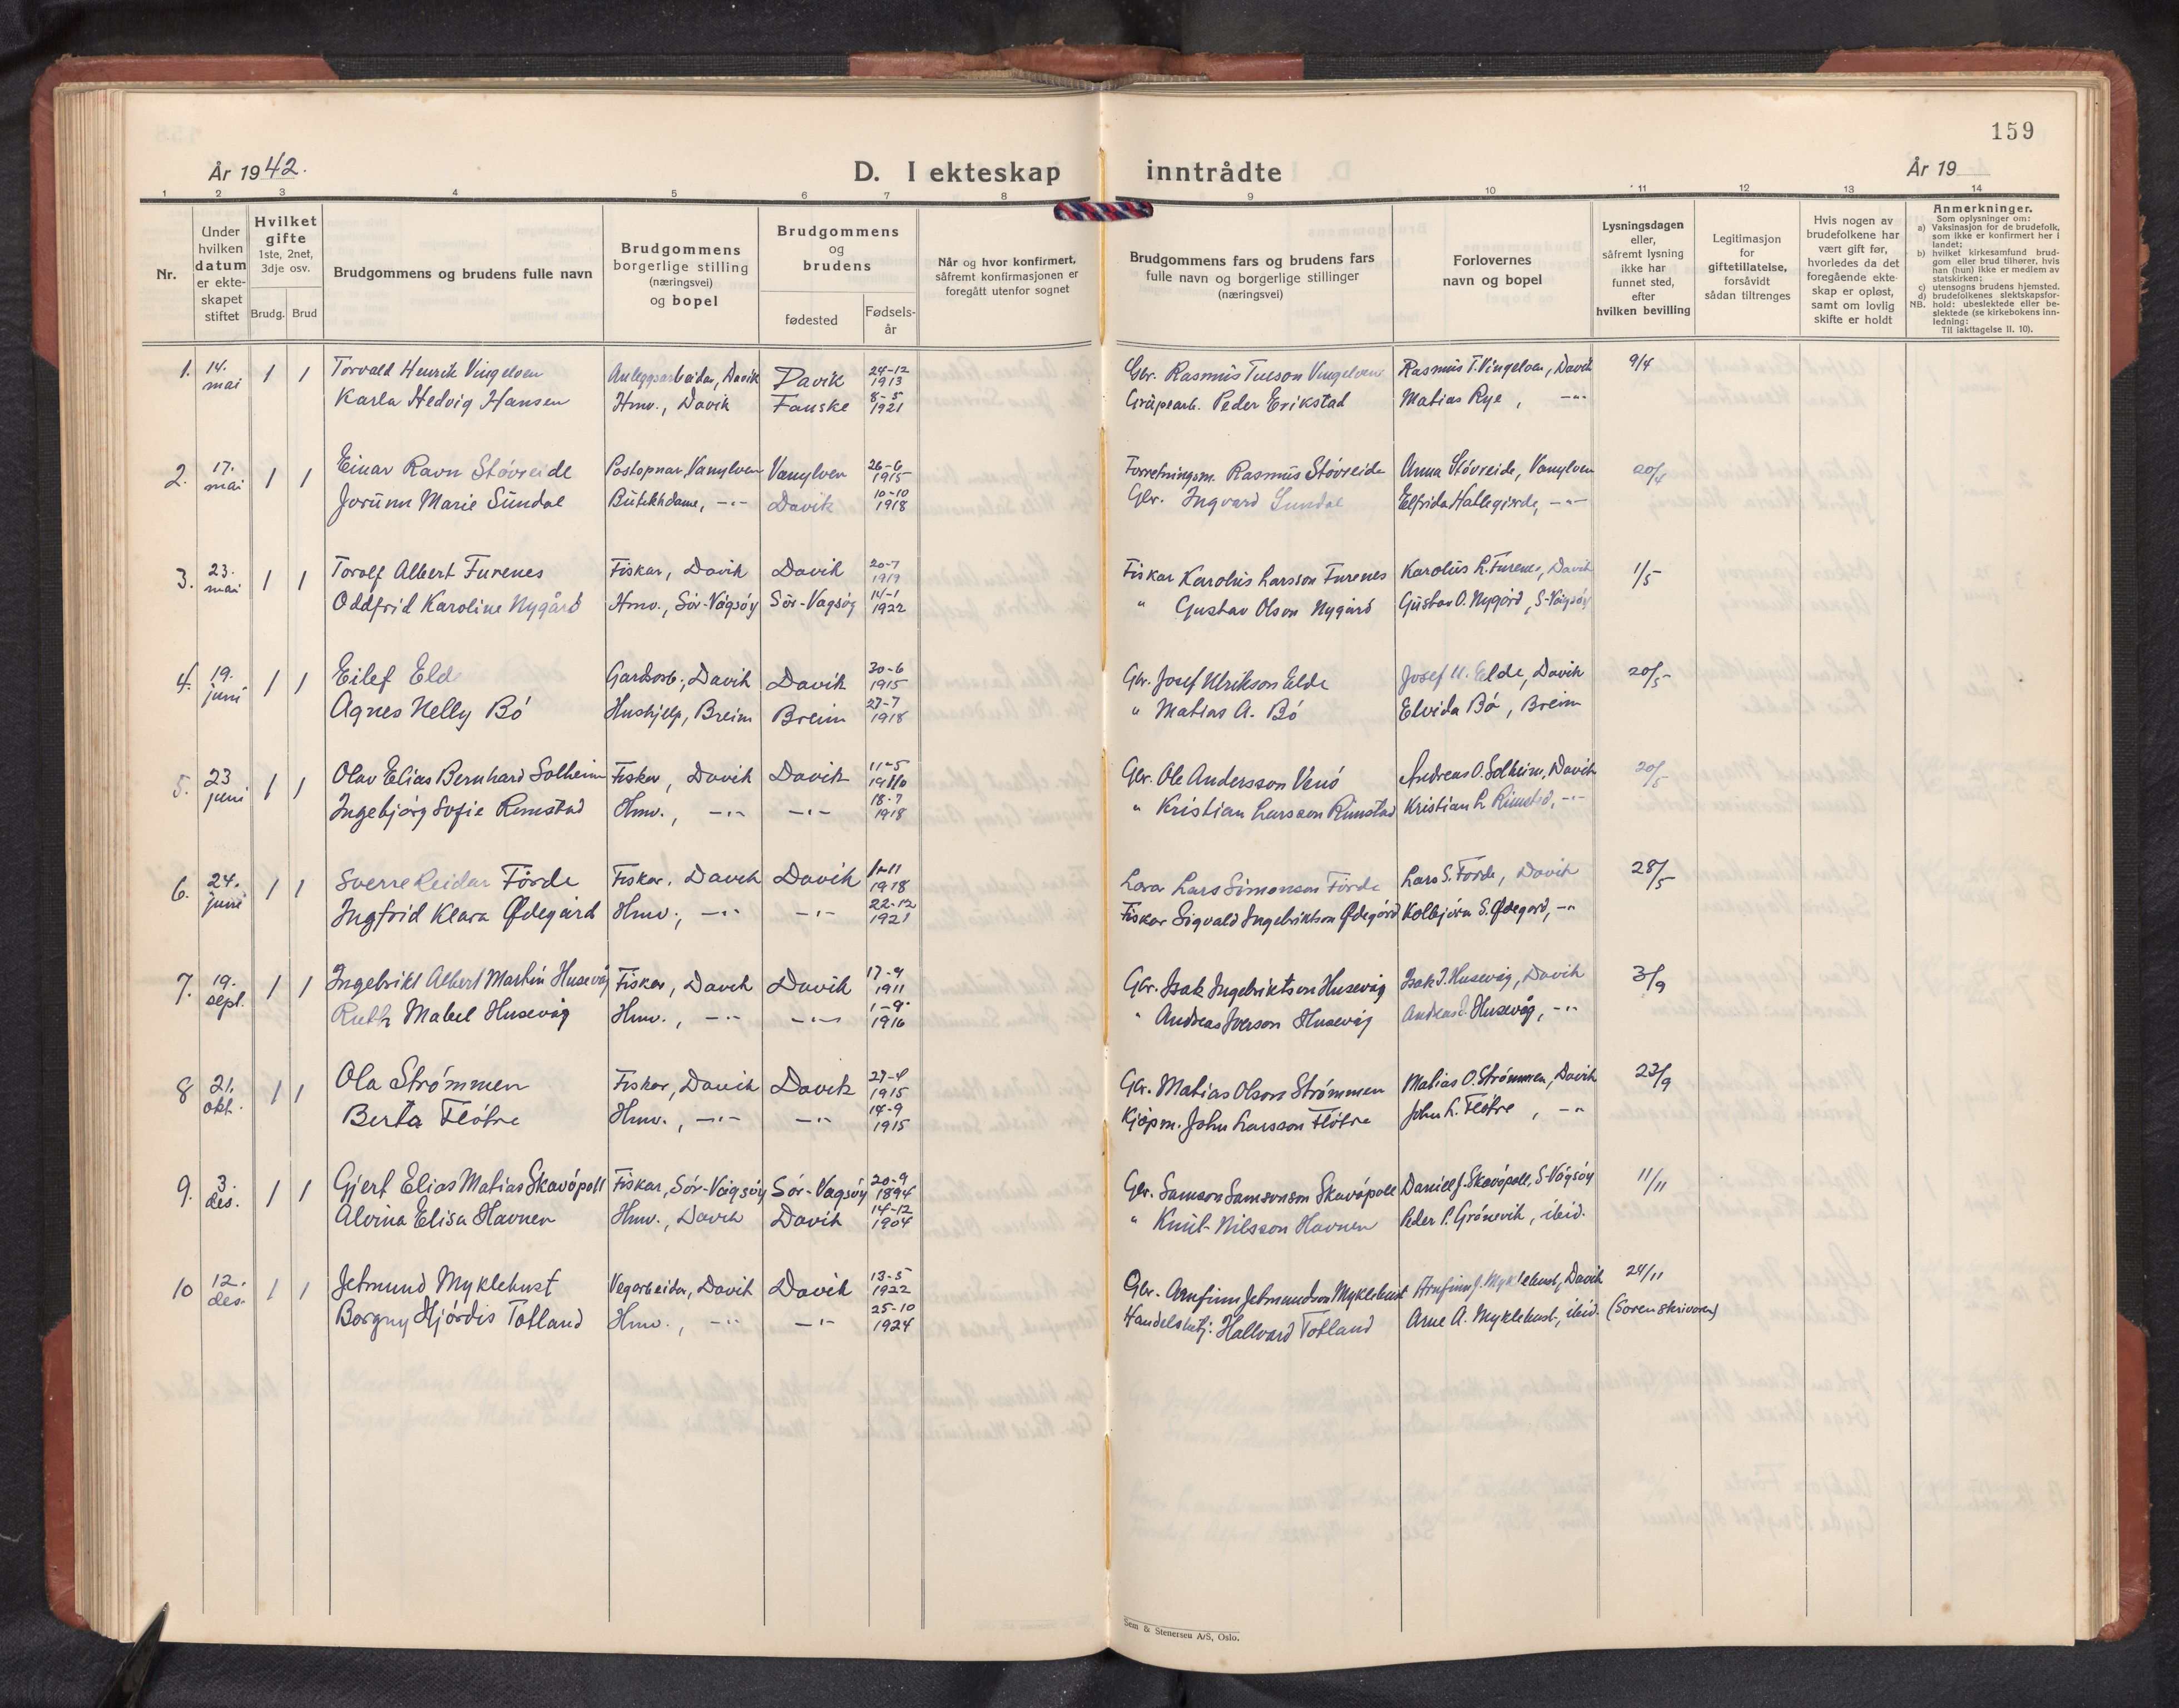 159
År 1942.
D. I ekteskap inntrådte
År 19
1 2 3 4 5 6 7 8 9 10 11 12 13 14
Nr.
Under hvilken datum er ekteskapet stiftet
Hvilket gifte 1ste, 2net, 3dje osv.
Brudg. Brud
Brudgommens og brudens fulle navn
Brudgommens borgerlige stilling (næringsvei) og bopel
Brudgommens og brudens
fødested
Fødselsår
Når og hvor konfirmert, såfremt konfirmasjonen er foregått utenfor sognet
Brudgommens fars og brudens fars fulle navn og borgerlige stillinger (næringsvei)
Forlovernes navn og bopel
Lysningsdagen eller, såfremt lysning ikke har funnet sted, efter hvilken bevilling
Legitimasjon for giftetillatelse, forsåvidt sådan tiltrenges
Hvis nogen av brudefolkene har vært gift før, hvorledes da det foregående ekteskap er opløst, samt om lovlig skifte er holdt
Anmerkninger.
Som oplysninger om:
a) Vaksinasjon for de brudefolk, som ikke er konfirmert her i landet;
b) hvilket kirkesamfund brudgom eller brud tilhører, hvis han (hun) ikke er medlem av statskirken;
c) utensogns brudens hjemsted.
d) brudefolkenes slektskapsforhold: ubeslektede eller beslektede (se kirkebokens innledning:
NB. Til iakttagelse II. 10).
1. 14. mai 1 1 Torvald Henrik Vingelven Anleggsarbeidar, Davik Davik 24-12 1913 Gbr. Rasmus Tueson Vingelven Rasmus T. Vingelven, Davik 9/4
Karla Hedvig Hansen Hmv., Davik Fauske 8-5 1921 Gruvearb. Peder Erikstad Matias Rye, -"-
2. 17. mai 1 1 Einar Ravn Støvreide Postopnar, Vanylven Vanylven 26-6 1915 Forretningsm. Rasmus Støvreide Anna Støvreide, Vanylven 20/4
Jorunn Marie Sundal Butikkdame, -"- Davik 10-10 1918 Gbr. Ingvard Sundal Elfrida Hallegjerde, -"-
3. 23. mai 1 1 Torolf Albert Furenes Fiskar, Davik Davik 20-7 1919 Fiskar Karolus Larsson Furenes Karolus L. Furenes, Davik 1/5
Oddfrid Karoline Nygård Hmv., Sør-Vågsøy Sør-Vågsøy 14-1 1922 " Gustav Olson Nygård Gustav O. Nygård, S-Vågsøy
4. 19. juni 1 1 Eilef Elde Gardsarb., Davik Davik 30-6 1915 Gbr. Josef Ulrikson Elde Josef U. Elde, Davik 20/5
Agnes Nelly Bø Hushjelp, Breim Breim 27-7 1918 " Matias A. Bø Elvida Bø, Breim
5. 23 juni 1 1 Olav Elias Bernhard Solheim Fiskar, Davik Davik 11-5 1910 Gbr. Ole Andersson Venø Andreas O. Solheim, Davik 20/5
Ingebjørg Sofie Rimstad Hmv., -"- -"- 18-7 1918 " Kristian Larsson Rimstad Kristian L. Rimstad, -"-
6. 24. juni 1 1 Sverre Reidar Førde Fiskar, Davik Davik 1-11 1918 Lars Simonson Førde Lars S. Førde, Davik 28/5
Ingfrid Klara Ødegård Hmv., -"- -"- 22-12 1921 Fiskar Sigvald Ingebriktson Ødegård Kolbjørn S. Ødegård, -"-
7. 19. sept. 1 1 Ingebrikt Albert Martin Husevåg Fiskar, Davik Davik 17-9 1911 Gbr. Isak Ingebriktson Husevåg Isak I. Husevåg, Davik 3/9
Ruth Mabel Husevåg Hmv., -"- -"- 1-9 1916 " Andreas Iverson Husevåg Andreas I. Husevåg, -"-
8 21. okt. 1 1 Ola Strømmen Fiskar, Davik Davik 27-4 1915 Gbr. Matias Olson Strømmen Matias O. Strømmen, Davik 23/9
Berta Fløtre Hmv., -"- -"- 14-9 1915 Kjøpm. John Larsson Fløtre John L. Fløtre, -"-
9. 3. des. 1 1 Gjert Elias Matias Skavøpoll Fiskar, Sør-Vågsøy Sør-Vagsøy 20-9 1894 Gbr. Samson Samsonson Skavøpoll Daniel J. Skavøpoll, S-Vågsøy 11/11
Alvina Elisa Havnen Hmv., Davik Davik 14-12 1904 " Knut Nilsson Havnen Peder P. Grønevik, ibid.
10 12. des. 1 1 Jetmund Myklebust Vegarbeidar, Davik Davik 13-5 1922 Gbr. Arnfinn Jetmundson Myklebust Arnfinn J. Myklebust, Davik 24/11
Borgny Hjørdis Totland Hmv., -"- -"- 25-10 1924 Handelsbetj. Hallvard Totland Arne A. Myklebust, ibid. (Sorenskrivaren)
Sem & Stenersen A/S, Oslo.